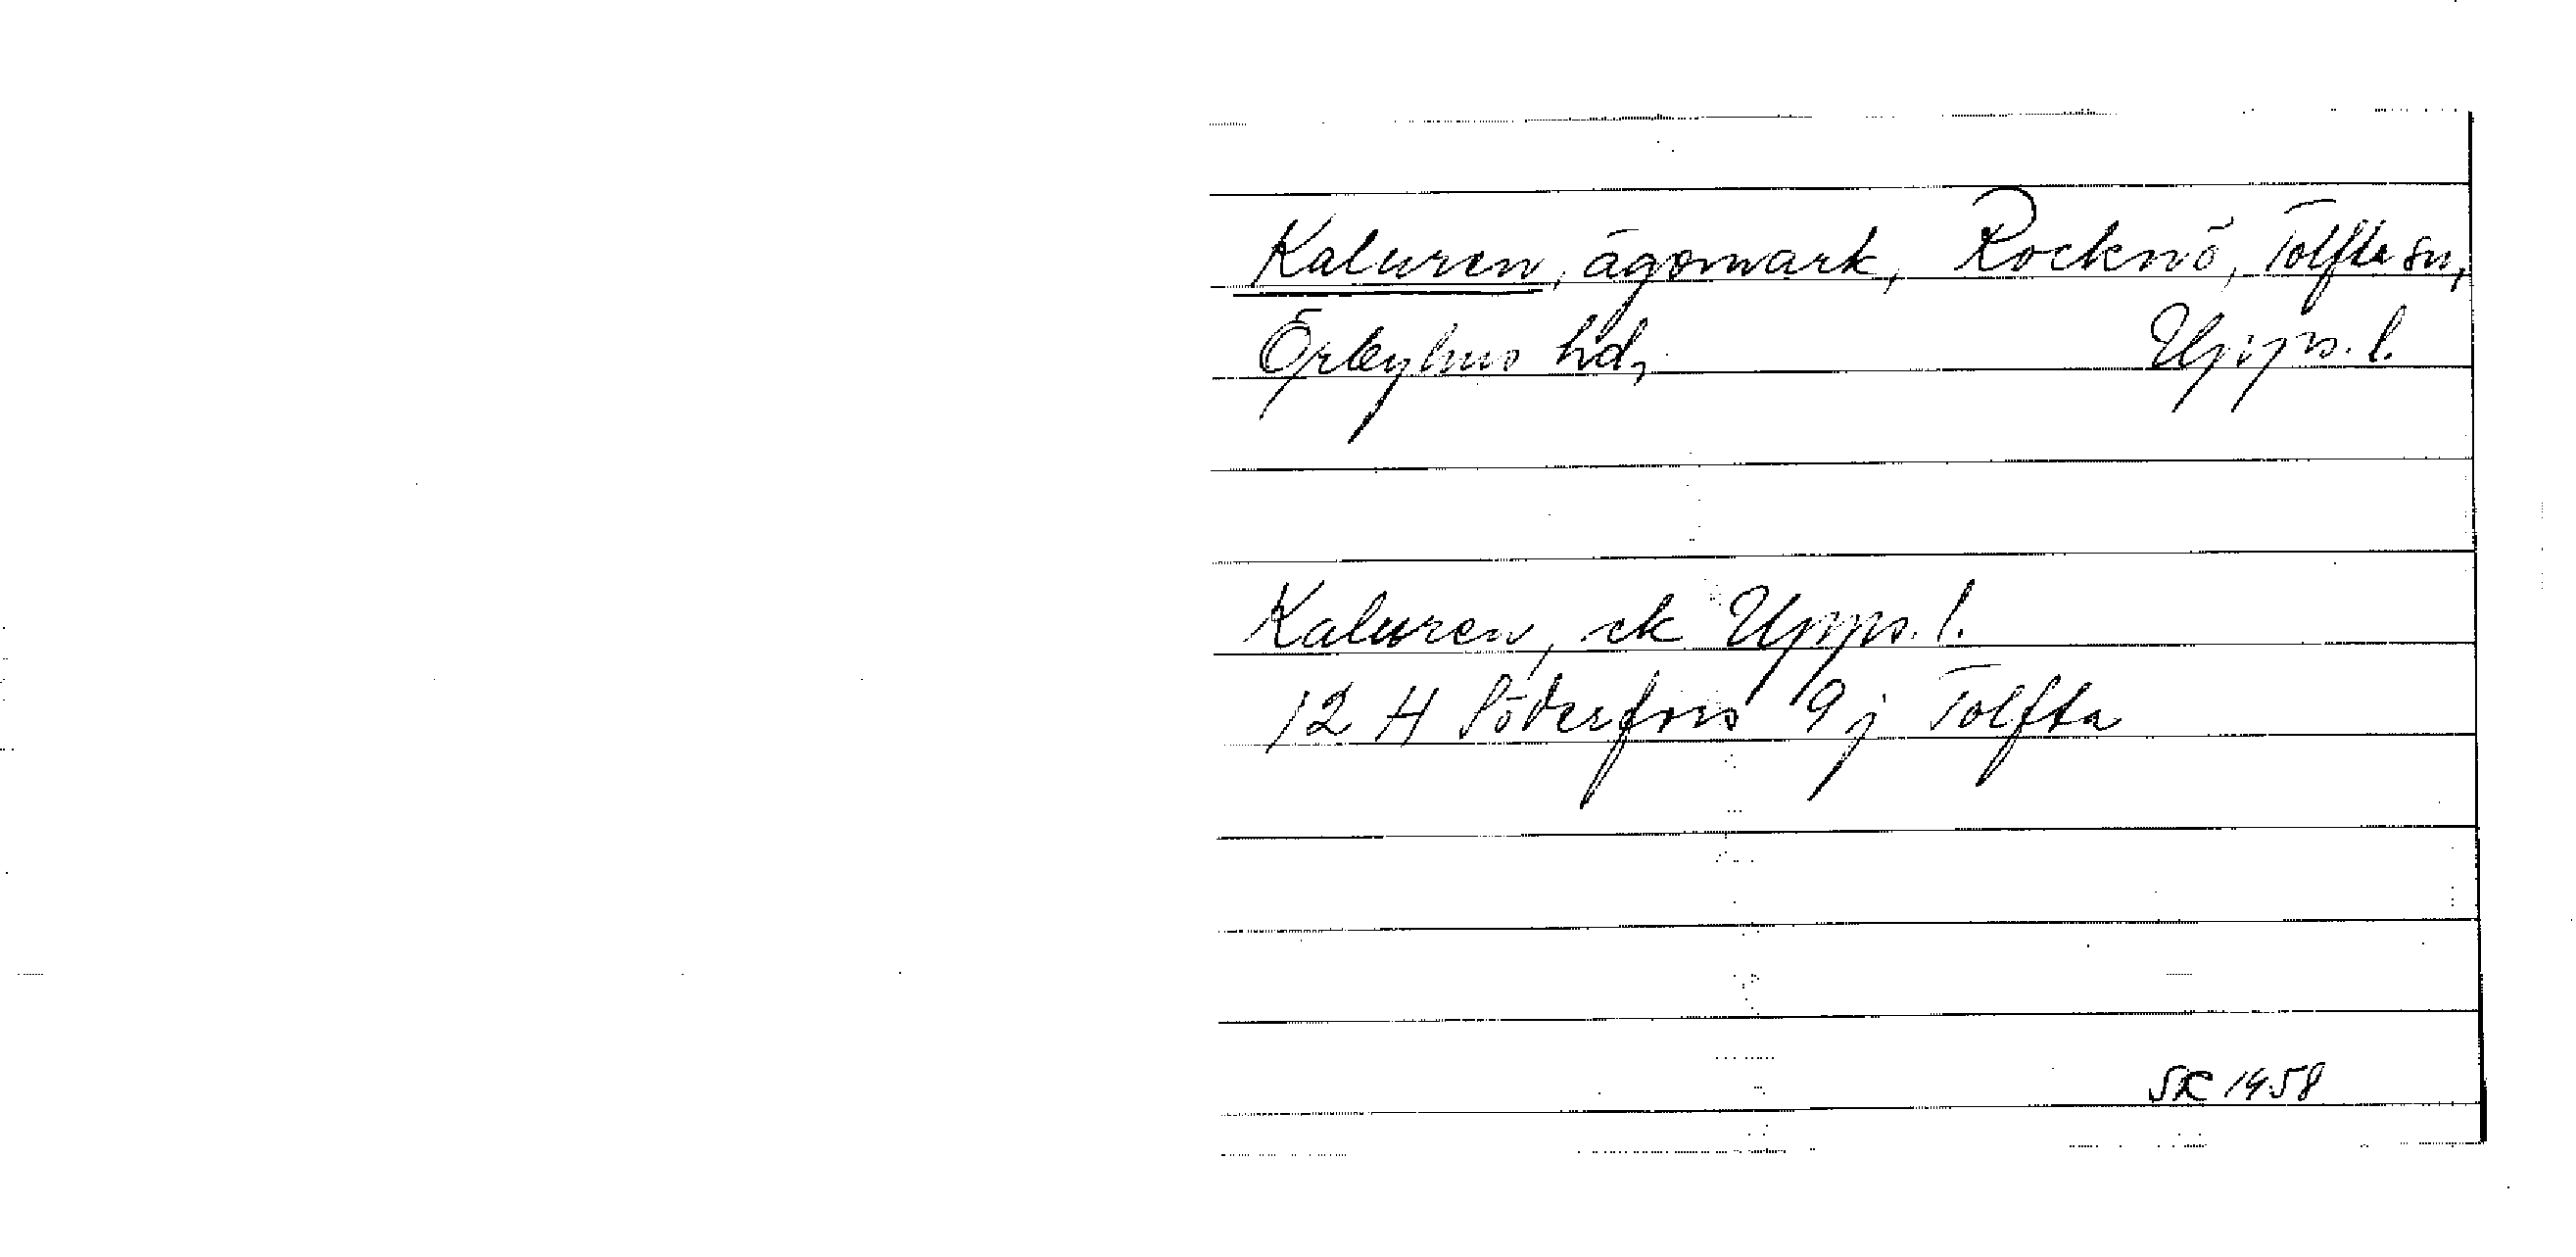 Kaluren, ägomark, Rocknö, Tolfta sn,
Örbyhus hd, Upps. l.
Kaluren, ek Upps. l.
12 H Söderfors 9 j Tolfta
SK 1958